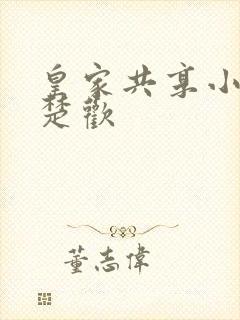 皇家共享小
楚歡
董志偉